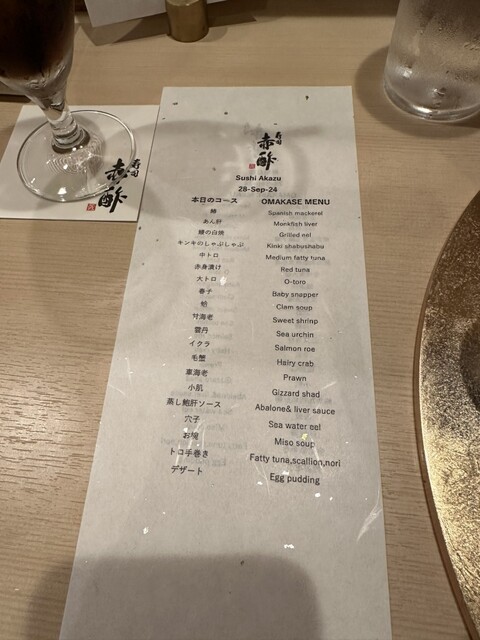 寿司
赤酢
寿司
赤酢
Sushi Akazu
28-Sep-24
本日のコース OMAKASE MENU
鰆 Spanish mackerel
あん肝 Monkfish liver
鰻の白焼 Grilled eel
キンキのしゃぶしゃぶ Kinki shabushabu
中トロ Medium fatty tuna
赤身漬け Red tuna
大トロ O-toro
春子 Baby snapper
蛤 Clam soup
甘海老 Sweet shrimp
雲丹 Sea urchin
イクラ Salmon roe
毛蟹 Hairy crab
車海老 Prawn
小肌 Gizzard shad
蒸し鮑肝ソース Abalone& liver sauce
穴子 Sea water eel
お椀 Miso soup
トロ手巻き Fatty tuna,scallion,nori
デザート Egg pudding